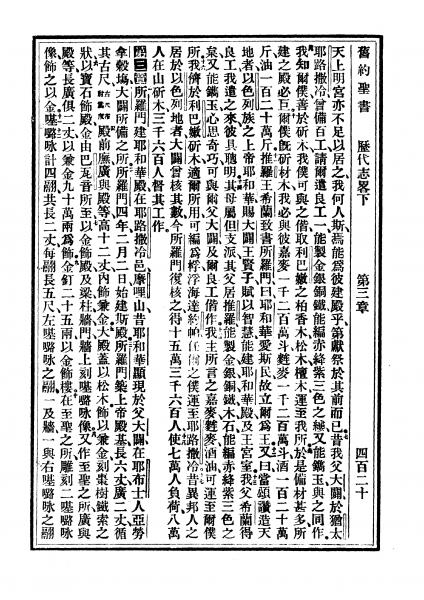 舊約聖書　歷代志畧下　第三章　四百二十
天上明宮亦不足以居之我何人斯焉能爲彼建殿乎第獻祭於其前而已昔我父大闢於猶太
耶路撒冷曾備百工請爾遣良工一能製金銀銅鐵能編赤絳紫三色之枲又能鐫玉與之同作
我知爾僕善於斫木我僕可與之偕取利巴嫩之柏香木松木檀木運至我所於是備材甚多所
建之殿必巨爾僕旣斫材木我必與彼嘉麥一千二百萬斗麰麥一千二百萬斗酒一百二十萬
斤油一百二十萬斤推羅王希蘭致書所羅門曰耶和華愛斯民故立爾爲王又曰當頌讚造天
地者以色列族之上帝耶和華賜大闢王賢子賦以智慧能建耶和華殿及王宮室我父希蘭得
良工我遣之來彼具聰明其母屬但支派其父居推羅能製金銀銅鐵木石能編赤絳紫三色之
枲又能鐫玉心思奇巧可與爾父大闢及爾良工偕作我主所言之嘉麥麰麥酒油可運至爾僕
所我儕於利巴嫩斫木適爾所用可編爲桴浮海達約帕任爾之僕運至耶路撒冷昔異邦人之
居於以色列地者大闢曾核其數今所羅門復核之得十五萬三千六百人使七萬人負荷八萬
人在山斫木三千六百人督其工作
第三章所羅門建耶和華殿在耶路撒冷邑摩哩山昔耶和華顯現於父大闢在耶布士人亞勞
拿穀塲大闢所備之所所羅門四年二月二日始建斯殿所羅門築上帝殿基長六丈廣二丈循
其古尺殿前廡廣與殿等高十二丈內飾兼金大殿蓋以松木飾以兼金刻棗樹鐵索之
狀以寶石飾殿金由巴瓦音所至以金飾殿及梁柱牆門牆上刻𠼖𡀔咏像又作至聖之所廣與
殿等長廣俱二丈以兼金九十萬兩爲飾金釘二十五兩以金飾樓在至聖之所雕刻二
像飾之以金計四翮共長二丈每翮長五尺左之翮一及牆一與右之翮